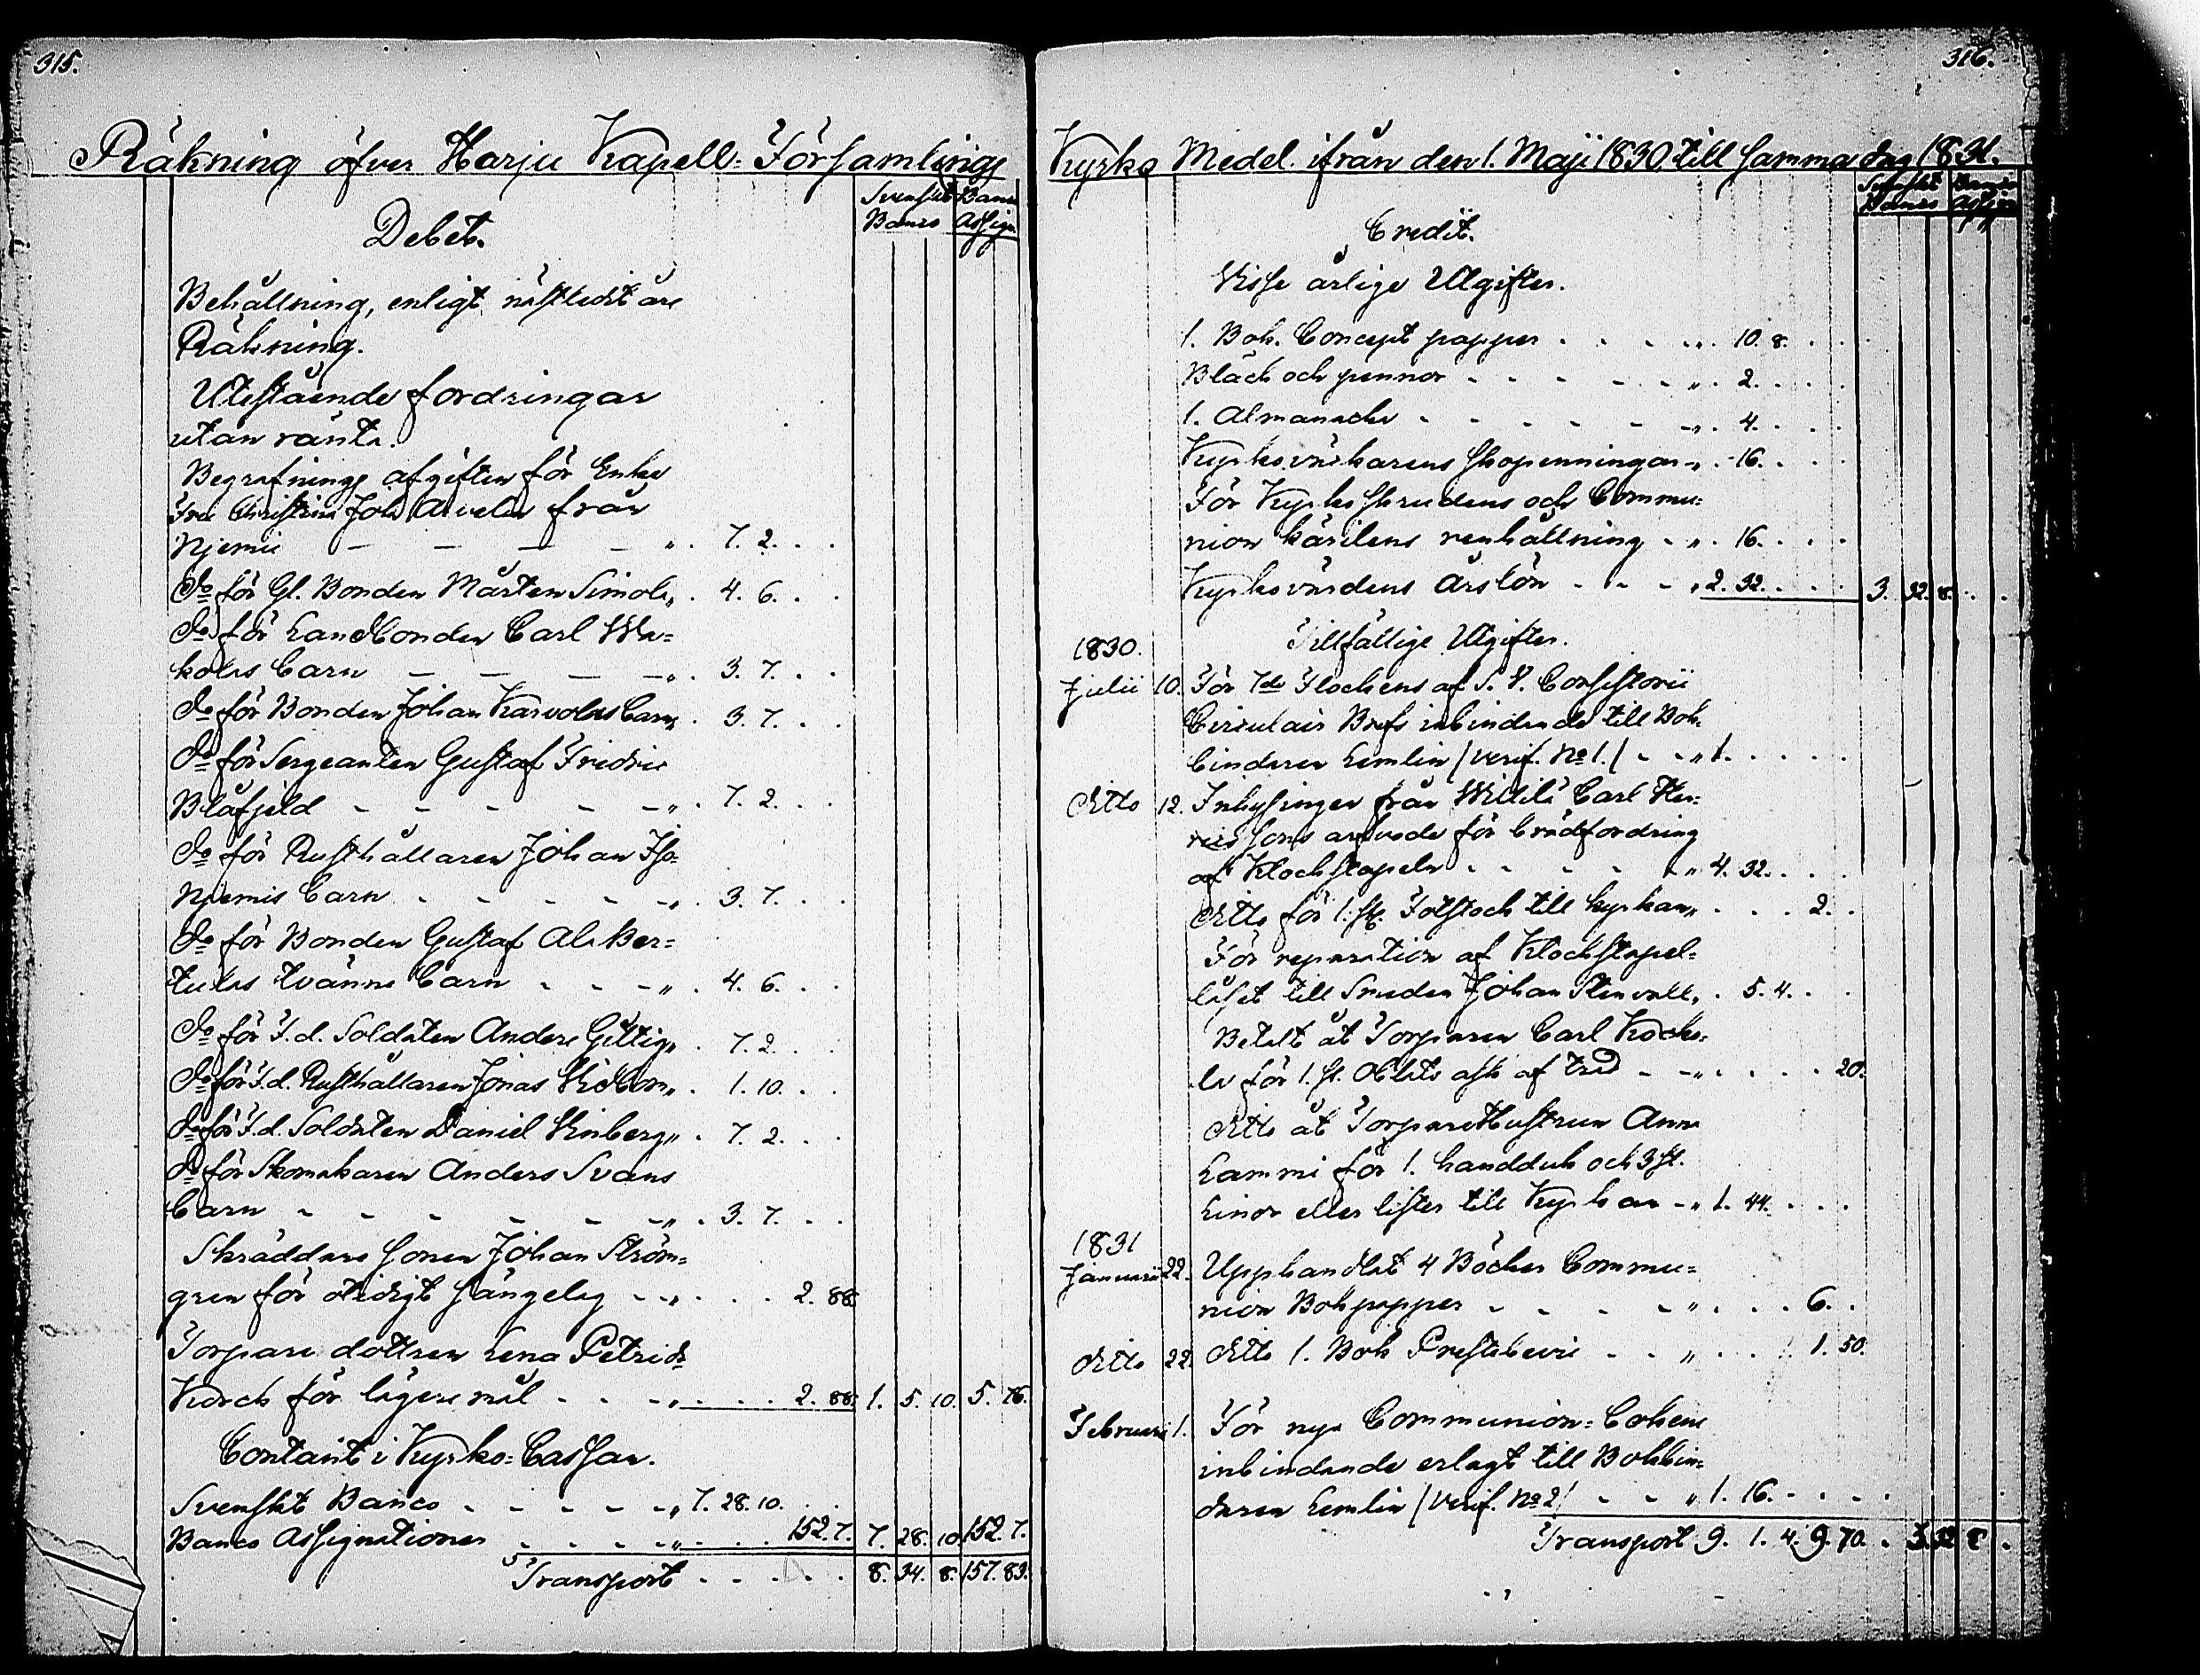 315.
Räkning öfver Harju Kapell-Församlings
Svenskt Banco
Banco Assign.
Debet.
Behållning, enligt nästledit års
Räkning.
Utestående fordringar
utan ränta.
Begrafnings afgiften för Enka
Fru Christina Joh. från
Njemis — — — — " . 7. 2. . .
do för Gl. Bonden Mårten Simola " . 4. 6. . .
do för Landbonden Carl Wa-
kolas barn — — — — " . 3. 7. . .
do för Bonden Johan Karvolas barn " . 3. 7. . .
do för Sergeanten Gustaf Fridric
Blåfjeld - - - - - - " . 7. 2. . .
do för Rusthållaren Johan Iso-
Njemis barn . - - - - " . 3. 7. . .
do för Bonden Gustaf Ala Ber-
tulas tvänne barn - - - " . 4. 6. . .
do för F.d. Soldaten Anders Gillig " . 7. 2. . .
do för F.d. Rusthållaren Jonas " . 1. 10. . .
do för F.d. Soldaten Daniel Vinberg " . 7. 2. . .
do för Skomakaren Anders Svans
barn - - - - - - " . 3. 7. . .
Skräddare Sonen Johan Ström-
gren för otidigt sängelag - - " . . . 2. 88.
Torpare dottren Lena Petrid:r
Korck för lägersmål - - - " . . . 2. 88. 1. 5. 10. 5. 76.
Contant i Kyrko-Cassan.
Svenskt Banco - - - - - " 7. 28. 10. . .
Banco Assignationer - - - - " . . . 152. 7. 7. 28. 10. 152. 7.
Transport - - - - - 8. 34. 8. 157. 83.
316.
Kyrko Medel ifrån den 1. Maji 1830 till samma dag 1831.
Svenskt Banco
Banco Assign
Credit.
Visse årlige Utgifter.
1. Bok. Concept papper . . . . " . 10. 8. . .
Bläck och pennor - - - - - " . 2. . . .
1. Almanacka - - - - - " . 4. . . .
Kyrkoväktarens skopenningar - " . 16. . . .
För Kyrko skrudens och Commu-
nion kärilens renhållning - " . 16. . . .
Kyrkovärdens årslön - - - " 2. 32. . . . 3. 32. 8. . .
Tillfällige Utgifter.
1830.
Julii 10. För 7de Flockens af S. V. Consistorii
Circulair Bref inbindande till Bok-
bindaren Lemlin /Verif. No 1./ - - " 1. . . . .
ditto 12. Inhysingen från Carl Hen-
rics sons arfvode för brädfordring
af Klockstapeln . - - - - " 4. 32. . . .
ditto för 1. st. Fotstock till kyrkan " . . . 2. .
För reparation af Klockstapel-
låset till Smeden Johan Stenvall " . 5. 4. . .
Betalt åt Torparen Carl Kocko-
la för 1. st. Oblats ask af träd - - " . . . . 20.
ditto åt Torpare Hustrun Anna
Lammi för 1. handduk och 3 st.
Linor eller lister till Kyrkan - " 1. 44. . . .
1831
Januarii 22. Upphandlat 4 Böcker Commu-
nion Bok papper - - - - - " . . . 6. .
ditto 22. ditto 1. Bok Prestbevis - - " . . . 1. 50.
Februarii 1. För nya Communion-bokens
inbindande erlagt till Bokbin-
daren Lemlin /Verif. No 2/ - - " 1. 16. - . . .
Transport 9. 1. 4. 9. 70. . 3. 32. 8. .